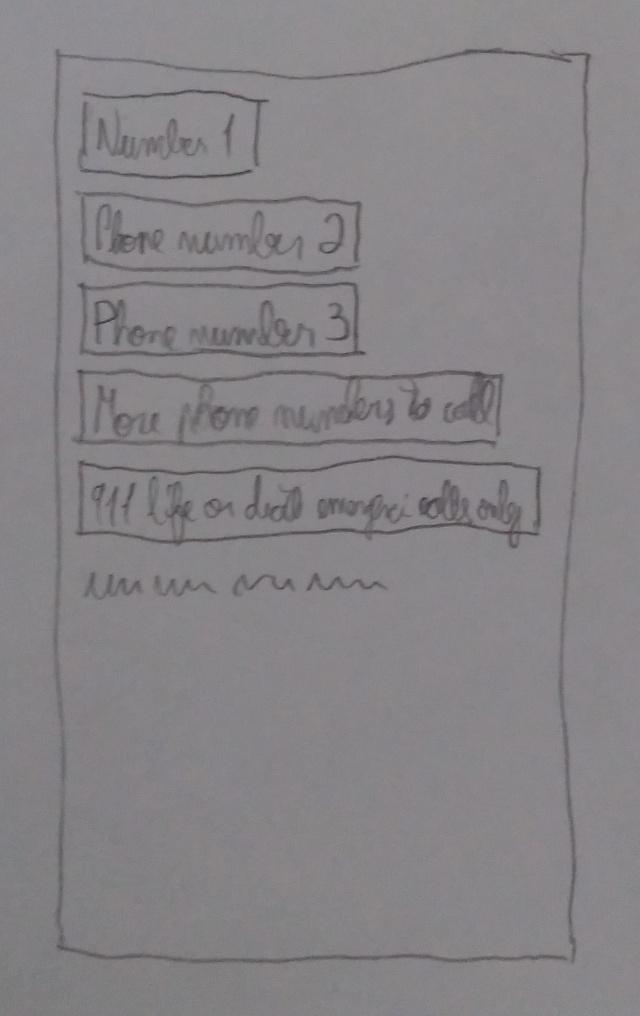 Number 1
Phone number 2
Phone number 3
More phone numbers to call
911 life or death calls only